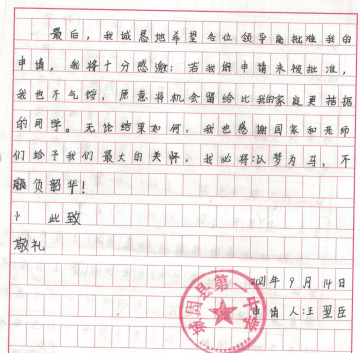 最后，我诚恳地希望各位领导能批准我的
申请，我将十分感激；若我的申请未被批准，
我也不气馁，愿意将机会留给比我的家庭更拮据
的同学。无论结果如何，我也感谢国家和老师
们给予我们最大的关怀，我必将：以梦为马，不
负韶华！
此致
敬礼
2021年9月14日
申请人：王翌臣
城固县第一中学